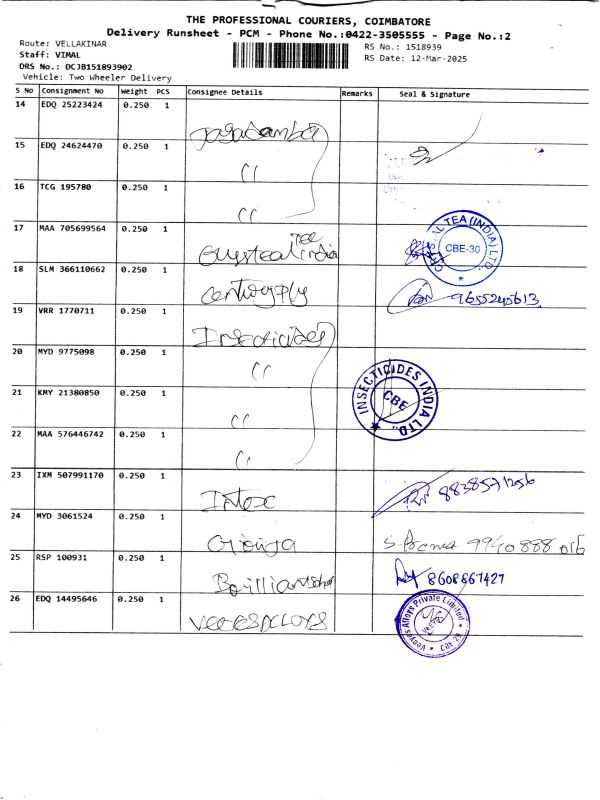 THE PROFESSIONAL COURIERS, COIMBATORE
Delivery Runsheet - PCM - Phone No.:0422-3505555 - Page No.:2
Route: VELLAKINAR
Staff: VIMAL
DRS No.: DCJB151893902
Vehicle: Two Wheeler Delivery
RS No.: 1518939
RS Date: 12-Mar-2025
S No Consignment No Weight PCS Consignee Details Remarks Seal & Signature
14 EDQ 25223424 0.250 1 Jagadamba
15 EDQ 24624470 0.250 1 "
16 TCG 195780 0.250 1 "
17 MAA 705699564 0.250 1 Crysteal Tee India
CRYSTAL TEA (INDIA) LTD.
CBE-30
18 SLM 366110662 0.250 1 Centuryply 9655245613
19 VRR 1770711 0.250 1 Insecticides
20 MYD 9775098 0.250 1 "
21 KMY 21380850 0.250 1 "
INSECTICIDES INDIA LTD.,
CBE
22 MAA 576446742 0.250 1 "
23 IXM 507991170 0.250 1 Intex 8838571256
24 MYD 3061524 0.250 1 9940888016
25 RSP 100931 0.250 1 8608867427
26 EDQ 14495646 0.250 1
Alloys Private Limited
CBE 29